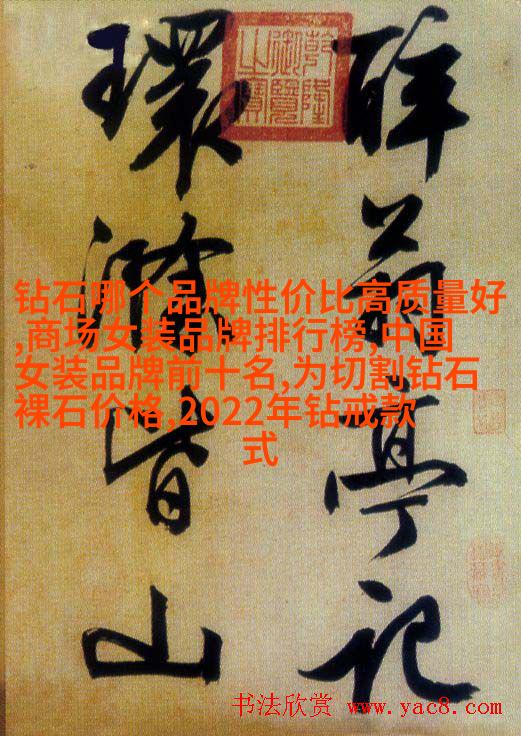 醉翁亭記
環滁皆山
乾隆
御覽
之寶
钻石哪个品牌性价比高质量好
,商场女装品牌排行榜,中国
女装品牌前十名,为切割钻石
裸石价格,2022年钻戒款
式
书法欣赏 www.yac8.com